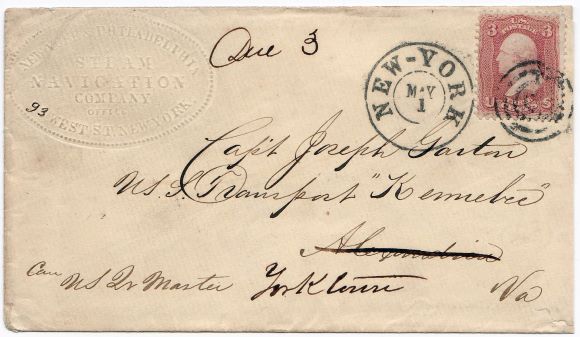 NEW YORK & PHILADELPHIA
STEAM
NAVIGATION
COMPANY
OFFICE
WEST ST. NEW YORK
93
Due 3
NEW-YORK
MAY
1
3 U.S. 3
POSTAGE
U S
Capt Joseph
U.S.S. Transport "Kennebec"
Alexandria
Care US Qr Master Yorktown Va